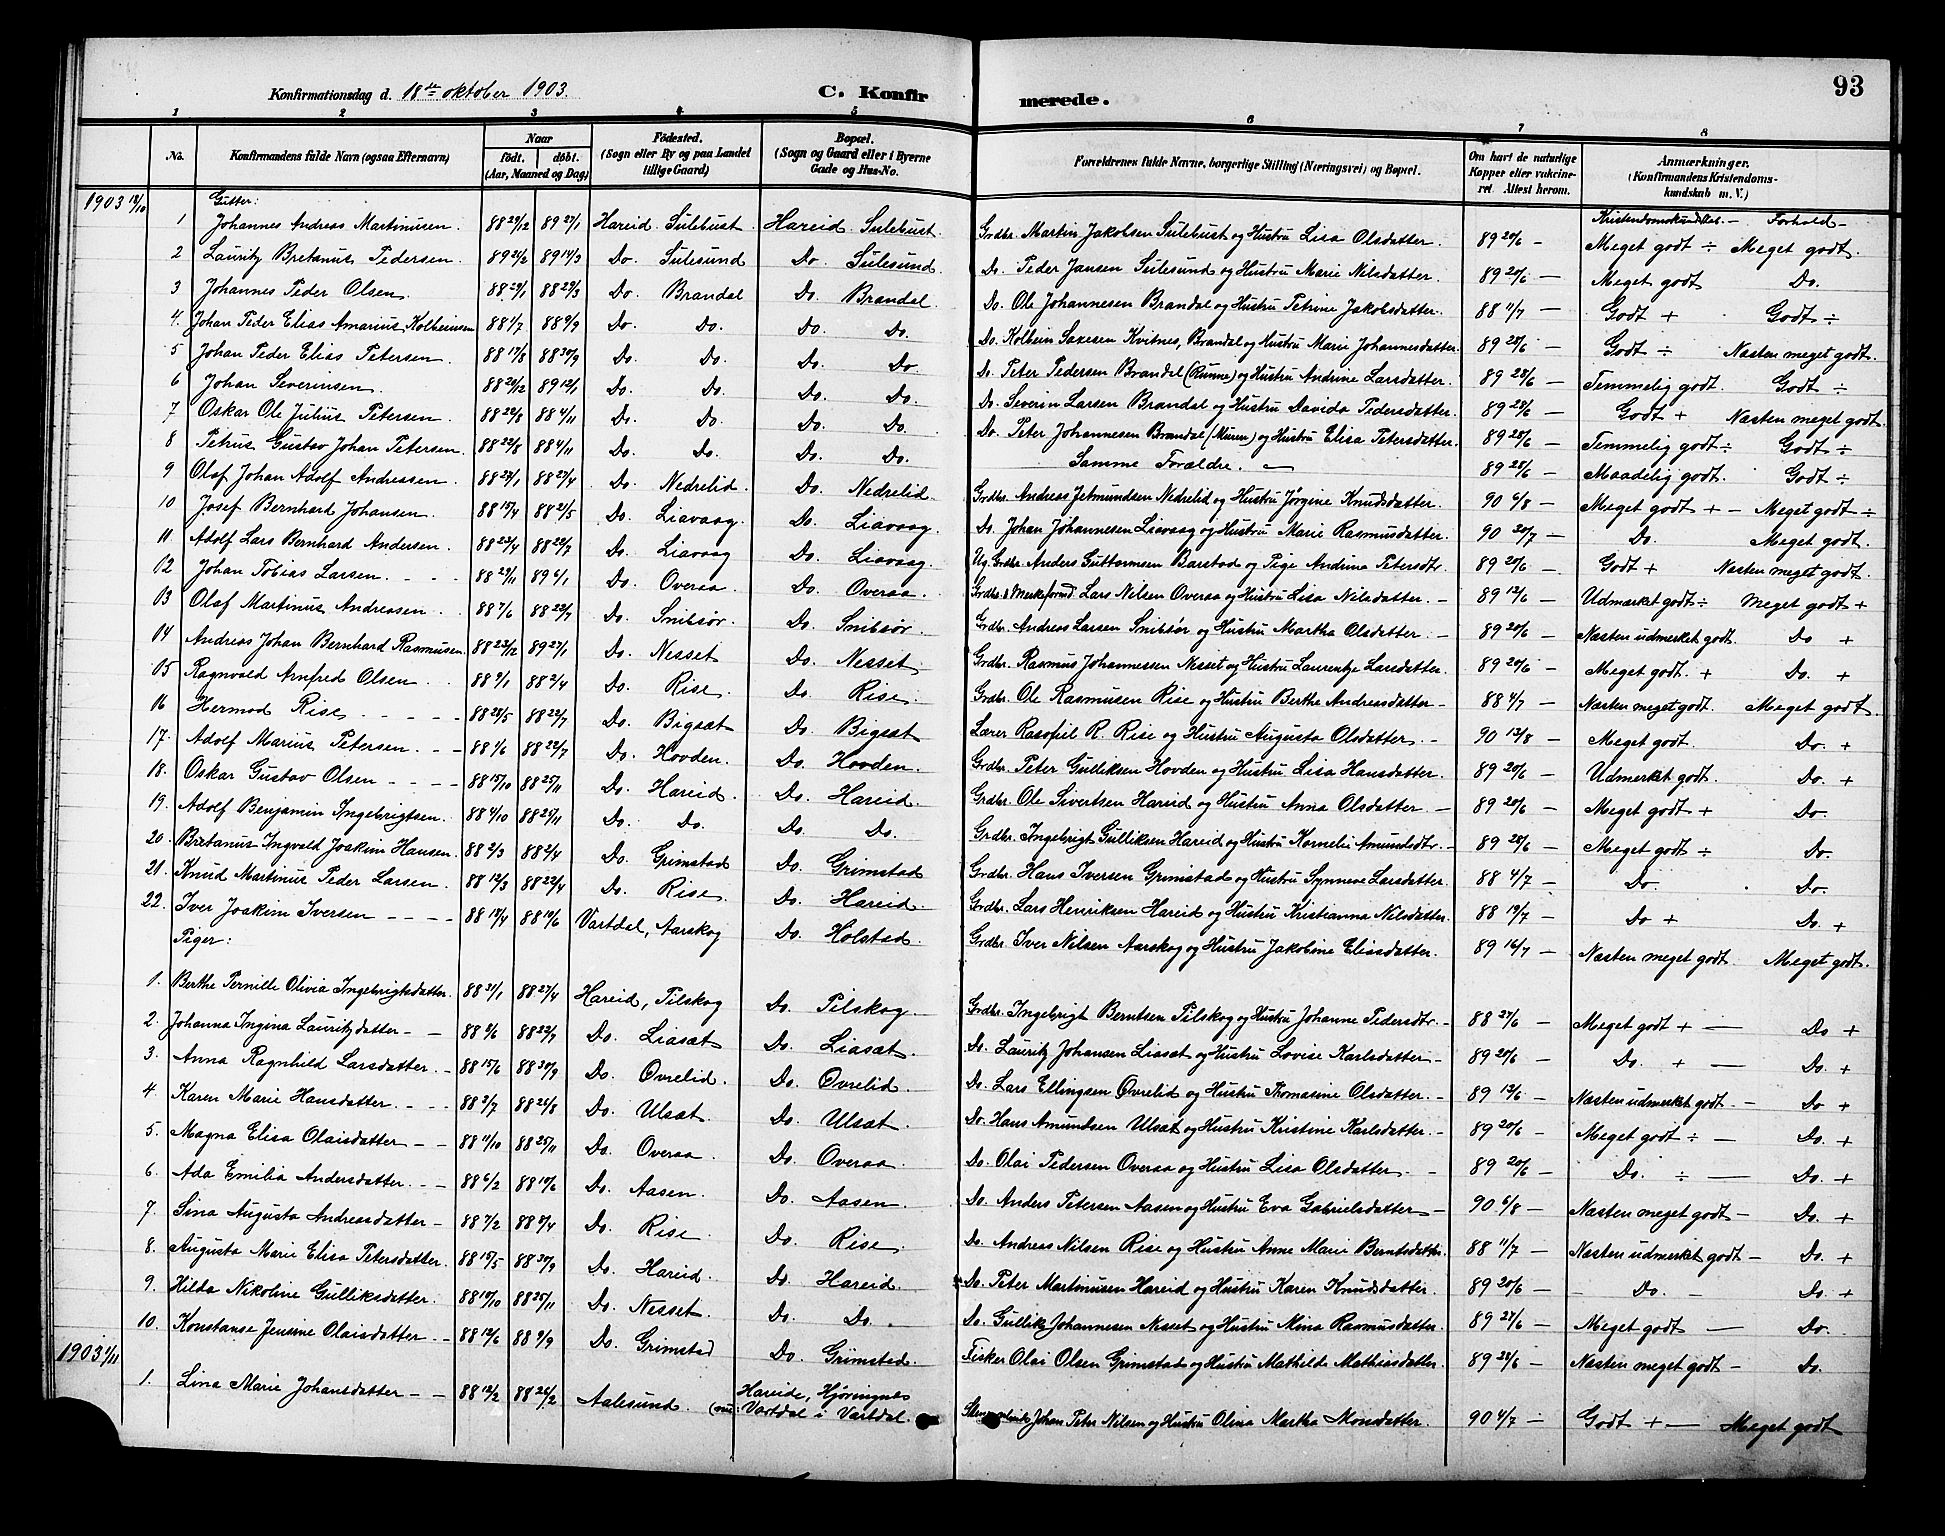 93
Konfirmationsdag d. 18de oktober 1903.
C. Konfirmerede.
1 2 3 4 5 6 7 8
No. Konfirmandens fulde Navn (ogsaa Efternavn) Naar födt. döbt. (Aar, Maaned og Dag) Födested. (Sogn eller By og paa Landet tillige Gaard) Bopæl. (Sogn og Gaard eller i Byerne Gade og Hus-No. Forældrenes fulde Navne, borgerlige Stilling (Næringsvei) og Bopæl. Om havt de naturlige Kopper eller vakcineret. Attest herom. Anmærkninger. (Konfirmandens Kristendomskundskab m. V.)
1903 18/10 Gutter: Kristendomskundskab. — Forhold —
1 Johannes Andreas Martinusen. 88 29/12 89 27/1 Hareid Sulebust. Hareid Sulebust. Grdbr. Martin Jakobsen Sulebust og Hustru Lisa Olsdatter. 89 20/6 — Meget godt ÷ Meget godt.
2 Lauritz Bretanus Pedersen. 89 21/2 89 14/3 Do. Sulesund Do. Sulesund. Do. Peder Jansen Sulesund og Hustru Marie Nilsdatter. 89 20/6 — Meget godt Do.
3 Johannes Peder Olsen. 88 29/1 88 29/3 Do. Brandal Do. Brandal. Do. Ole Johannesen Brandal og Hustru Petrine Jakobsdatter. 88 11/7 — Godt + Godt ÷
4. Johan Peder Elias Amarius Kolbeinsen 88 1/7 88 9/9 Do. Do. Do. Do. Do. Kolbein Saxesen Kvitnes, Brandal og Hustru Marie Johannesdatter. 89 28/6 — Godt ÷ Næsten meget godt.
5 Johan Peder Elias Petersen. 88 17/8 88 30/9 Do. Do. Do. Do Do. Peter Pedersen Brandal (Runne) og Hustru Andrine Larsdatter. 89 28/6 — Temmelig godt. Godt ÷
6 Johan Severinsen. 88 28/12 89 12/1 Do. Do. Do. Do. Do. Severin Larsen Brandal og Hustru Davida Pedersdatter. 89 28/6 — Godt + Næsten meget godt
7 Oskar Ole Julius Petersen. 88 22/8 88 4/11 Do. Do. Do. Do. Do. Peter Johannesen Brandal (Muren) og Hustru Elisa Petersdatter. 89 28/6 — Temmelig godt ÷ Godt ÷
8 Petrus Gustav Johan Petersen. 88 22/8 88 4/11 Do. Do. Do. Do. Samme Forældre. — 89 28/6 — Maadelig godt. Godt ÷
9 Olaf Johan Adolf Andreasen. 88 24/1 88 27/4 Do. Nedrelid. Do. Nedrelid. Grdbr. Andreas Jetmundsen Nedrelid og Hustru Jørgine Knudsdatter. 90 6/8 — Meget godt + — Meget godt ÷
10 Josef Bernhard Johansen. 88 15/4 88 21/5 Do. Liavaag. Do. Liavaag. Do. Johan Johannesen Liavaag og Hustru Marie Rasmusdatter. 90 20/7 — Do. Meget godt.
11. Adolf Lars Bernhard Andersen. 88 23/4 88 22/7 Do. Liavaag Do. Liavaag. Ug. Grdbr. Anders Guttormsen Barstad og Pige Andrina Petersdtr. 89 20/6 — Godt + Næsten meget godt.
12 Johan Tobias Larsen. 88 29/11 89 6/1 Do. Overaa Do. Overaa. Lars Nilsen Overaa og Hustru Lisa Nilsdatter. — 89 12/6 — Udmærket godt ÷ Meget godt +
13 Olaf Martinus Andreasen. 88 7/6 88 22/7 Do. Snibsør. Do. Snibsør. Grdbr. Andreas Larsen Snibsør og Hustru Martha Olsdatter. — 89 20/6 — Næsten udmerket godt. Do +
14 Andreas Johan Bernhard Rasmusen. 88 22/12 89 27/1 Do. Nesset Do. Nesset Grdbr. Rasmus Johannessen Nesset og Hustru Laurentze Larsdatter. 89 20/6 — Meget godt. + Do. +
15 Ragnvald Arnfred Olsen. 88 9/1 88 2/4 Do. Rise. Do. Rise. Grdbr. Ole Rasmusen Rise og Hustru Berthe Andreasdatter — 88 4/7 — Næsten meget godt. Meget godt.
16 Hermod Rise 88 28/5 88 22/7 Do. Bigsæt Do. Bigsæt Lærer Rasofiel R. Rise og Hustru Augusta Olsdatter. — 90 13/8 — Meget godt. Do. +
17. Adolf Marius Petersen. 88 1/6 88 22/7 Do. Hovden. Do. Hovden. Grdbr. Peter Gulliksen Hovden og Hustru Lisa Hansdatter. 89 20/6 — Udmerket godt. Do. +
18. Oskar Gustav Olsen 88 15/10 88 25/11 Do. Hareid. Do. Hareid. Grdbr. Ole Sivertsen Hareid og Hustru Anna Olsdatter — 89 20/6 — Meget godt + Do.
19. Adolf Benjamin Ingebrigtsen. 88 4/10 88 25/11 Do. Do. Do. Do. Grdbr. Ingebrigt Gulliksen Hareid og Hustru Kornelie Amundsdtr. — 89 28/6 — Meget godt ÷ Do.
20. Bretanus Ingvald Joakim Hansen. 88 2/3 88 2/4 Do. Grimstad Do. Grimstad Grdbr. Hans Iversen Grimstad og Hustru Synneve Larsdatter. 88 4/7 — Do. Do.
21. Knud Martinus Peder Larsen. 88 12/3 88 22/4 Do. Rise. Do. Hareid. Grdbr. Lars Henriksen Hareid og Hustru Kristianna Nilsdatter. 88 19/7 — Do + Do. +
22. Iver Joakim Iversen 88 18/4 88 10/6 Vartdal, Aarskog Do. Holstad. Grdbr. Iver Nilsen Aarskog og Hustru Jakobine Eliasdatter. 89 16/7 — Næsten meget godt. Meget godt.
Piger:
1. Berthe Pernille Olivia Ingebrigtsdatter. 88 31/1 88 27/4 Hareid, Pilskog Do. Pilskog. Grdbr. Ingebrigt Berntsen Pilskog og Hustru Johanne Pedersdtr. — 88 27/6 — Meget godt + — Do +
2. Johanna Ingina Lauritzdatter — 88 9/6 88 22/7 Do. Liasæt Do. Liasæt. Do. Lauritz Johansen Liasæt og Hustru Lovise Karlsdatter — 89 20/6 — Do. + — Do. +
3. Anna Ragnhild Larsdatter. — 88 15/6 88 30/9 Do. Øvrelid. Do. Øvrelid. Do. Lars Ellingsen Øvrelid og Hustru Thomasine Olsdatter. — 89 12/6 — Næsten udmerket godt. — Do +
4. Karen Marie Hansdatter. 88 3/7 88 26/8 Do. Ulsæt. Do. Ulsæt. Do. Hans Amundsen Ulsæt og Hustru Kristine Karlsdatter. — 89 20/6 — Meget godt ÷ — Do. +
5. Magna Elisa Olaisdatter — 88 11/10 88 25/11 Do. Overaa. Do. Overaa. Do. Olai Pedersen Overaa og Hustru Lisa Olsdatter. — 89 20/6 — Do. ÷ — Do. +
6. Ada Emilia Andersdatter. — 88 6/2 88 10/6 Do. Aasen. Do. Aasen. Do. Anders Petersen Aasen og Hustru Eva Gabrielsdatter — 90 6/8 — Næsten meget godt — Do. +
7. Lina Augusta Andreasdatter — 88 7/2 88 8/4 Do. Rise. Do. Rise. Do. Andreas Nilsen Rise og Hustru Anne Marie Berntsdattr. 88 11/7 — Næsten udmerket godt — Do. +
8. Augusta Marie Elisa Petersdatter. 88 15/5 88 30/9 Do. Hareid. Do. Hareid. Do. Peter Martinusen Hareid og Hustru Karen Knudsdatter. 89 20/6 — Do. Do. +
9. Hilda Nikoline Gulliksdatter. 88 19/10 88 25/11 Do. Nesset. Do. Do. Do. Gullik Johannesen Nesset og Hustru Mina Rasmusdatter. 89 27/6 — Meget godt — Do.
10. Konstanse Jensine Olaisdatter 88 12/6 88 9/9 Do. Grimstad Do. Grimstad. Fisker Olai Olsen Grimstad og Hustru Mathilde Mathiasdatter. 89 28/6 — Næsten meget godt — Do.
1903 1/11
1. Lina Marie Johansdatter — 88 12/2 88 26/2 Aalesund. Hareide, Hjørungnes (nu: Vartdal i Vartdal. Johan Peter Nilsen og Hustru Olina Martha Monsdatter. 90 4/7 — Godt + — Meget godt